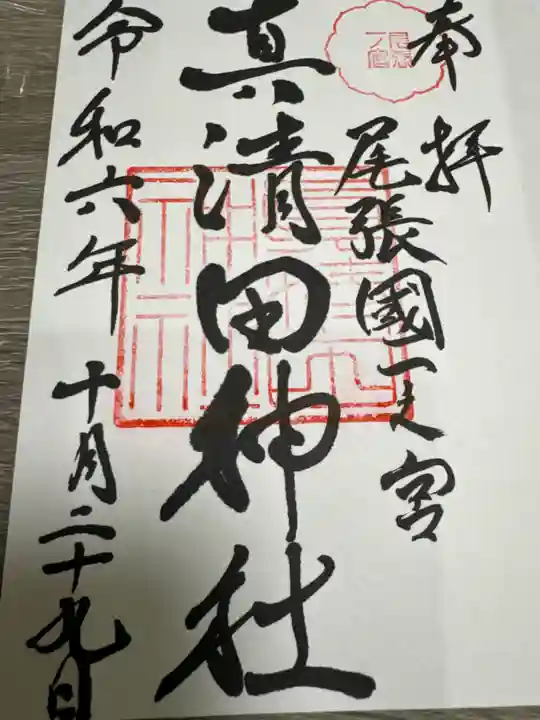 奉拝
尾張一宮
尾張國一之宮
真清田神社
令和六年十月二十九日